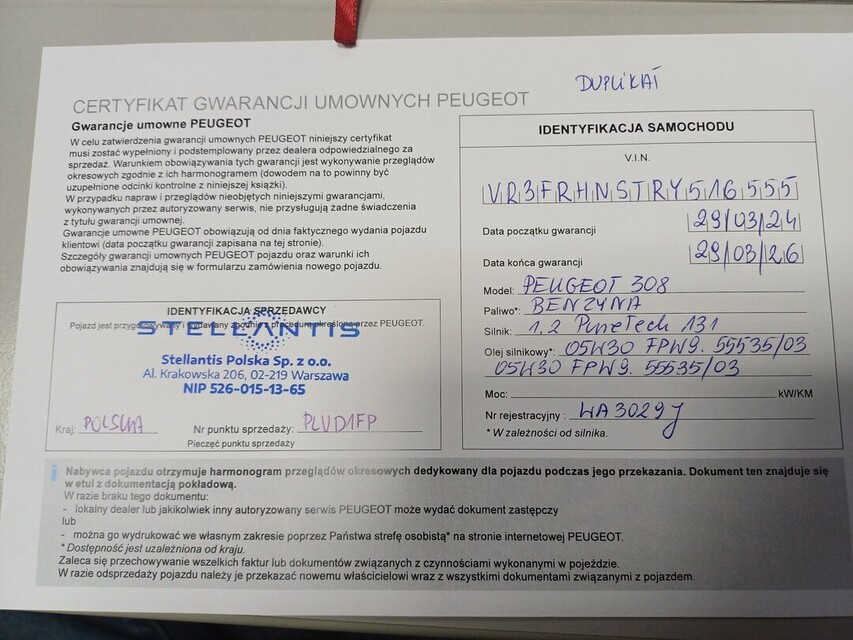 DUPLIKAT
CERTYFIKAT GWARANCJI UMOWNYCH PEUGEOT
Gwarancje umowne PEUGEOT
W celu zatwierdzenia gwarancji umownych PEUGEOT niniejszy certyfikat
musi zostać wypełniony i podstemplowany przez dealera odpowiedzialnego za
sprzedaż. Warunkiem obowiązywania tych gwarancji jest wykonywanie przeglądów
okresowych zgodnie z ich harmonogramem (dowodem na to powinny być
uzupełnione odcinki kontrolne z niniejszej książki).
W przypadku napraw i przeglądów nieobjętych niniejszymi gwarancjami,
wykonywanych przez autoryzowany serwis, nie przysługują żadne świadczenia
z tytułu gwarancji umownej.
Gwarancje umowne PEUGEOT obowiązują od dnia faktycznego wydania pojazdu
klientowi (data początku gwarancji zapisana na tej stronie).
Szczegóły gwarancji umownych PEUGEOT pojazdu oraz warunki ich
obowiązywania znajdują się w formularzu zamówienia nowego pojazdu.
IDENTYFIKACJA SAMOCHODU
V.I.N.
VR3FRHNSTRY516555
Data początku gwarancji 29/03/24
Data końca gwarancji 29/03/26
Model: PEUGEOT 308
Paliwo*: BENZYNA
Silnik: 1,2 PureTech 131
Olej silnikowy*: 05W30 FPW9. 55535/03
05W30 FPW9. 55535/03
Moc: kW/KM
Nr rejestracyjny: WA3029J
* W zależności od silnika.
IDENTYFIKACJA SPRZEDAWCY
Pojazd jest przygotowywany i wydawany zgodnie z procedurą określoną przez PEUGEOT.
STELLANTIS
Stellantis Polska Sp. z o.o.
Al. Krakowska 206, 02-219 Warszawa
NIP 526-015-13-65
Kraj: POLSKA Nr punktu sprzedaży: PLVD1FP
Pieczęć punktu sprzedaży
i Nabywca pojazdu otrzymuje harmonogram przeglądów okresowych dedykowany dla pojazdu podczas jego przekazania. Dokument ten znajduje się
w etui z dokumentacją pokładową.
W razie braku tego dokumentu:
- lokalny dealer lub jakikolwiek inny autoryzowany serwis PEUGEOT może wydać dokument zastępczy
lub
- można go wydrukować we własnym zakresie poprzez Państwa strefę osobistą* na stronie internetowej PEUGEOT.
* Dostępność jest uzależniona od kraju.
Zaleca się przechowywanie wszelkich faktur lub dokumentów związanych z czynnościami wykonanymi w pojeździe.
W razie odsprzedaży pojazdu należy je przekazać nowemu właścicielowi wraz z wszystkimi dokumentami związanymi z pojazdem.